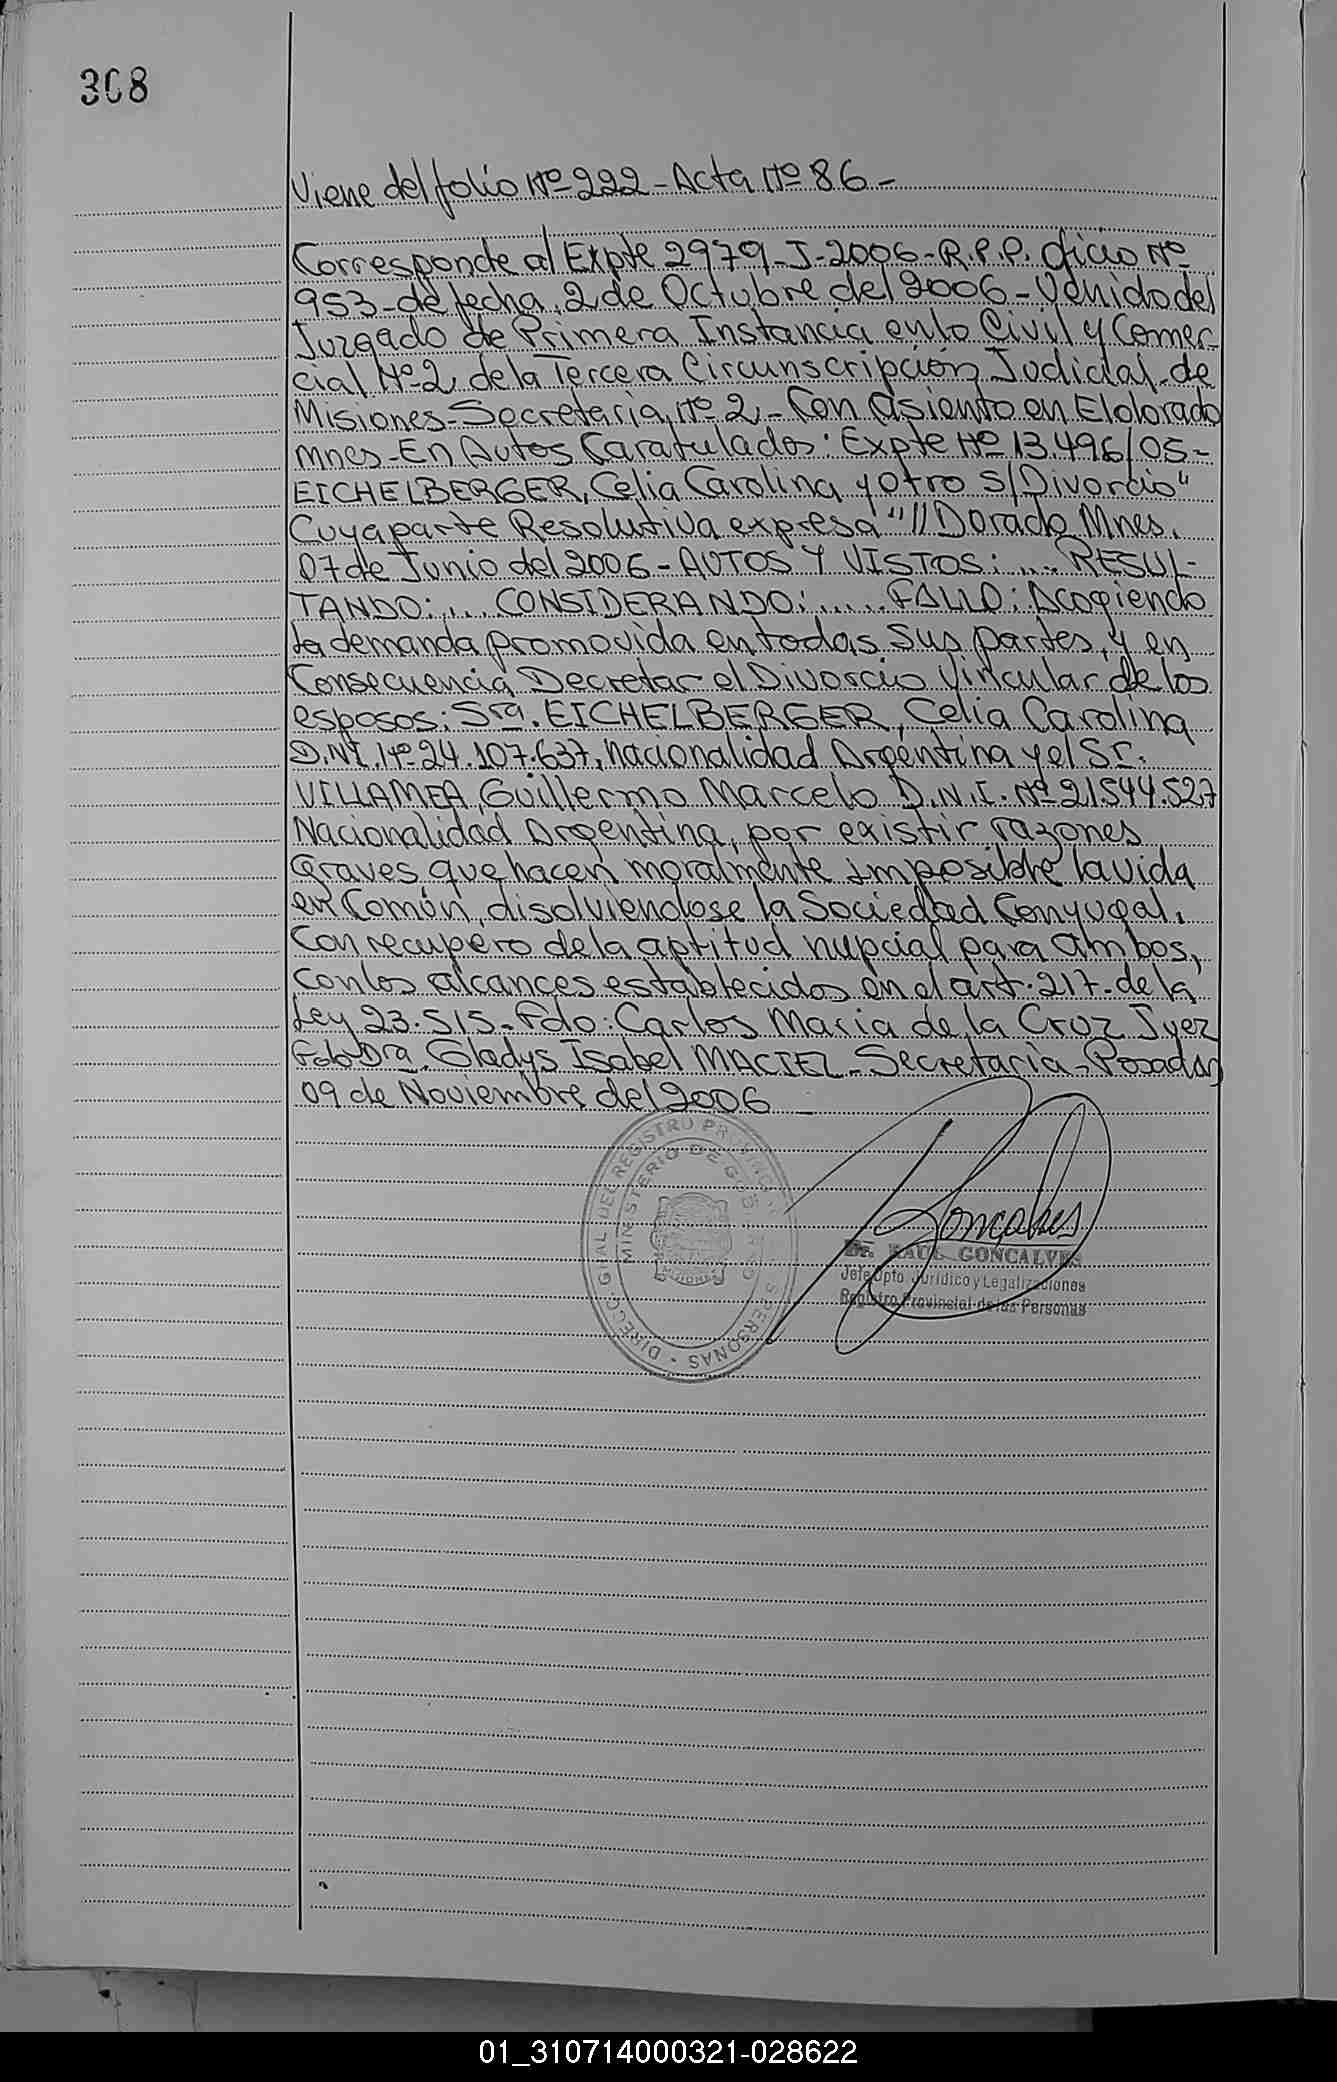 308
Viene del folio Nº 222 - Acta Nº 86 -
Corresponde al Expte 2979-J-2006-R.P.P. Oficio Nº
953 - de fecha, 2 de Octubre del 2006 - Venido del
Juzgado de Primera Instancia en lo Civil y Comer-
cial Nº 2, de la Tercera Circunscripción Judicial de
Misiones - Secretaria, Nº 2, - Con asiento en Eldorado
Mnes - En Autos Caratulados: Expte Nº 13.496/05 -
EICHELBERGER, Celia Carolina y otro S/Divorcio"
Cuya parte Resolutiva expresa "//Dorado, Mnes,
07 de Junio del 2006 - AUTOS Y VISTOS: .... RESUL-
TANDO: .... CONSIDERANDO: ..... FALLO: Acogiendo
la demanda promovida en todas sus partes, y en
Consecuencia Decretar el Divorcio Vincular de los
esposos: Sra. EICHELBERGER, Celia Carolina
D.N.I. Nº 24.107.637, nacionalidad Argentina y el Sr.
VILLAMEA, Guillermo Marcelo D.N.I. Nº 21.544.527
Nacionalidad Argentina, por existir razones
Graves que hacen moralmente imposible la vida
en Común, disolviendose la Sociedad Conyugal,
Con recupero de la aptitud nupcial para ambos,
con los alcances establecidos en el art. 217 - de la
Ley 23.515 - Fdo: Carlos Maria de la Cruz Juez
Fdo Dra. Gladys Isabel MACIEL - Secretaria - Posadas
09 de Noviembre del 2006
DIRECC. GRAL. DEL REGISTRO PROVINCIAL PERSONAS
MINISTERIO DE GOBIERNO
MISIONES
Goncalves
Dr. RAUL GONCALVES
Jefe Dpto. Jurídico y Legalizaciones
Registro Provincial de las Personas
01_310714000321-028622